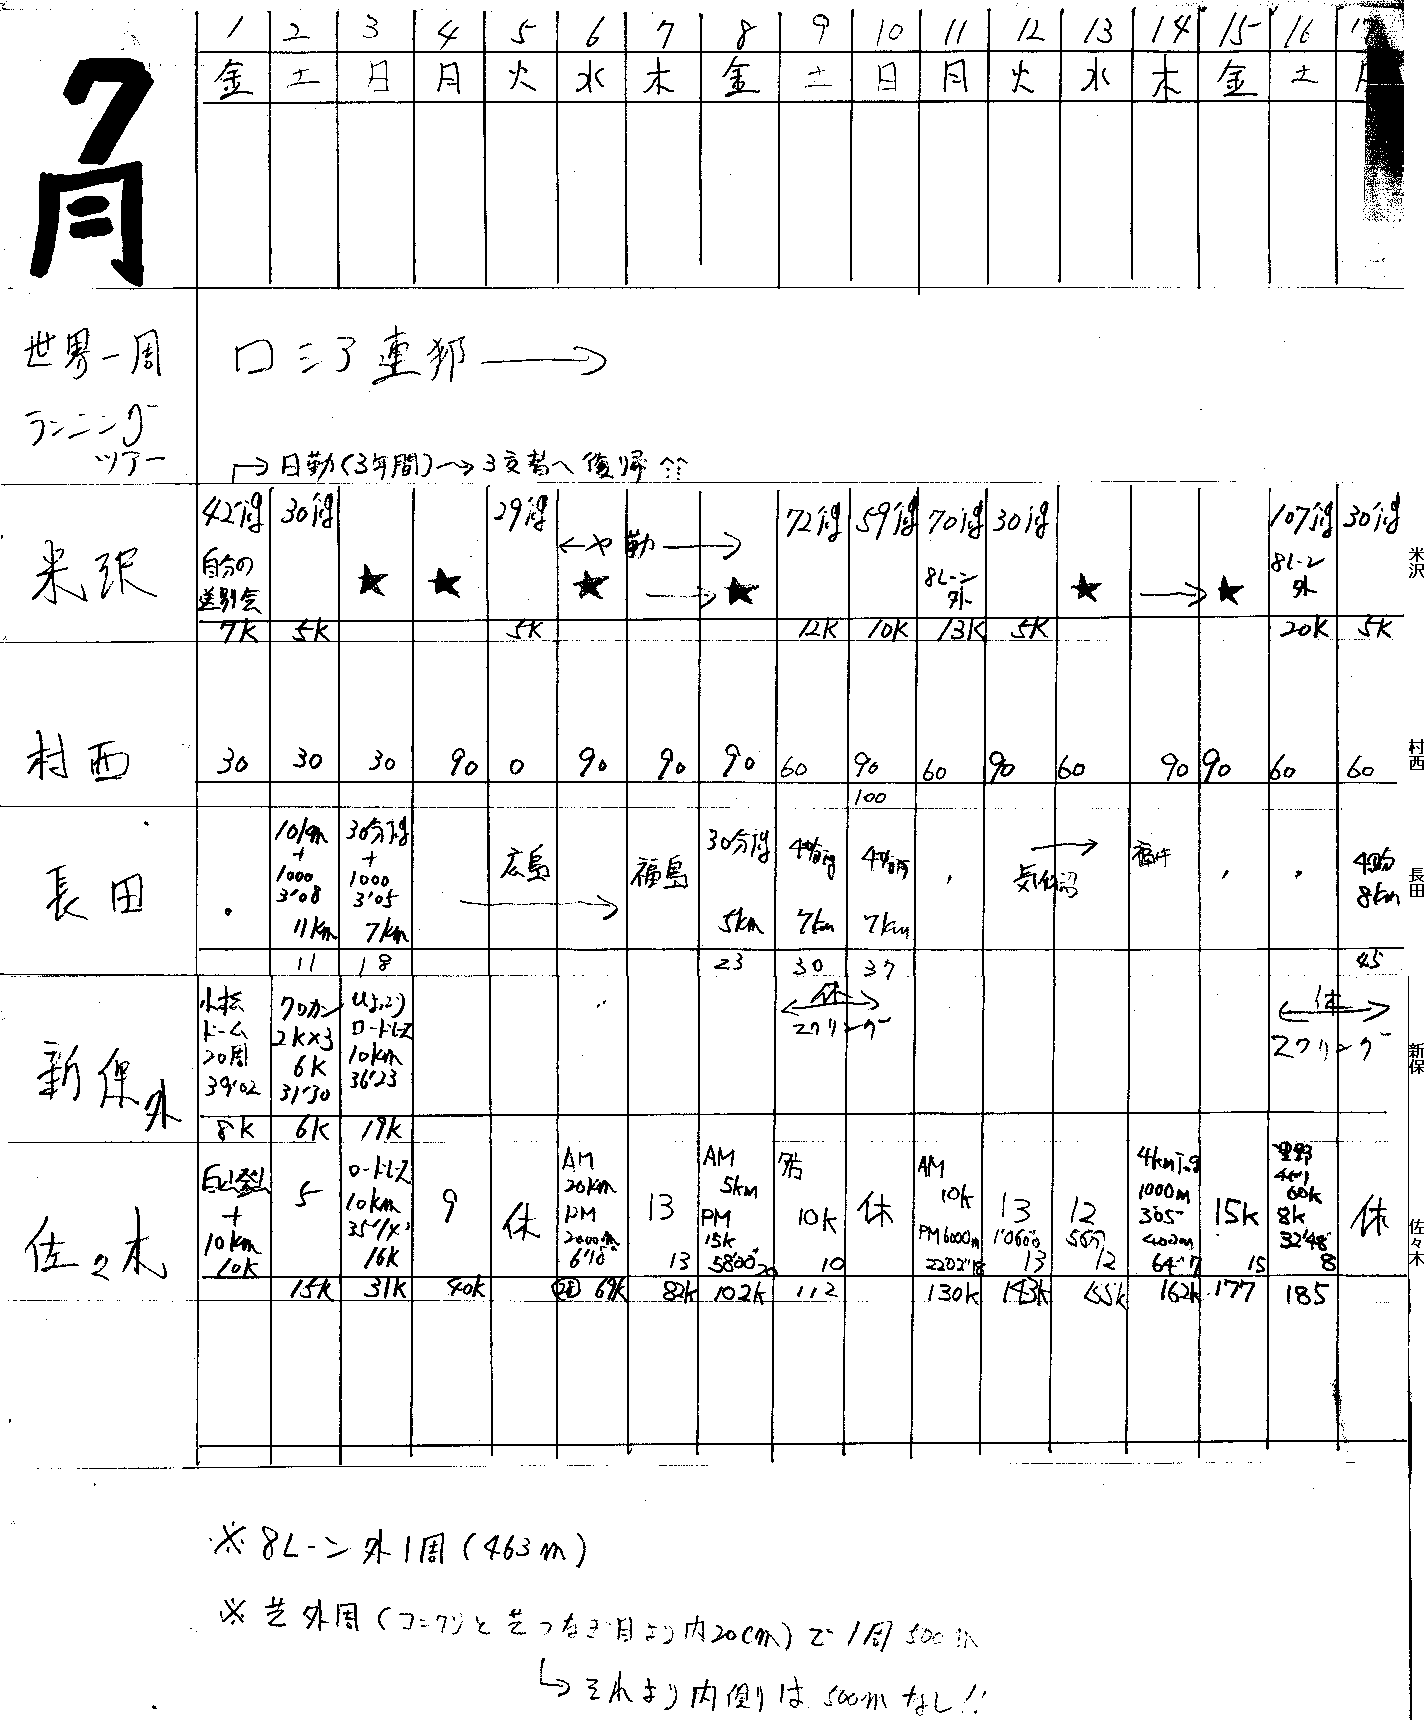 7月
1 2 3 4 5 6 7 8 9 10 11 12 13 14 15 16
金 土 日 月 火 水 木 金 土 日 月 火 水 木 金 土
世界一周
ランニング
ツアー
ロシア連邦 →
→日勤(3年間)→3交替へ復帰
米沢
42分jog 30分jog 29分jog 72分jog 59分jog 70分jog 30分jog 107分jog 30分jog
自分の
送別会
★ ★ ★ → ★ ★ → ★
8レーン
外
8レーン
外
7K 5K 5K 12K 10K 13K 5K 20K 5K
米沢
村西
30 30 30 90 0 90 90 90 60 90 60 90 60 90 90 60 60
100
村西
長田
10km
+
1000
3'08
11km
30分jog
+
1000
3'05
7km
広島
→
福島
30分jog
5km
7km
7km
→
8km
11 18 23 30 37 45
長田
新保外
小松
ドーム
20周
39'02
2K×3
6K
31'30
ロードレース
10km
36'23
休
スクリング
休
スクリング
8K 6K 19K
新保
佐々木
白山登山
+
10km
10K
5
ロードレース
10km
16K
9
休
AM
20km
PM
2000m
6'10
13
13
AM
5km
PM
15K
58'00" 20
10K
10
休
AM
10K
PM 6000m
13
13
12
12
1000m
3'05"
15K
15
8K
32'48"
8
休
15K 31K 40K 69K 82K 102K 112 130K 143K 155K 162K 177 185
佐々木
※8レーン外1周(463m)
※芝外周(コンクリと芝つなぎ目より内20cm)で1周500m
↳それより内側は500mなし!!